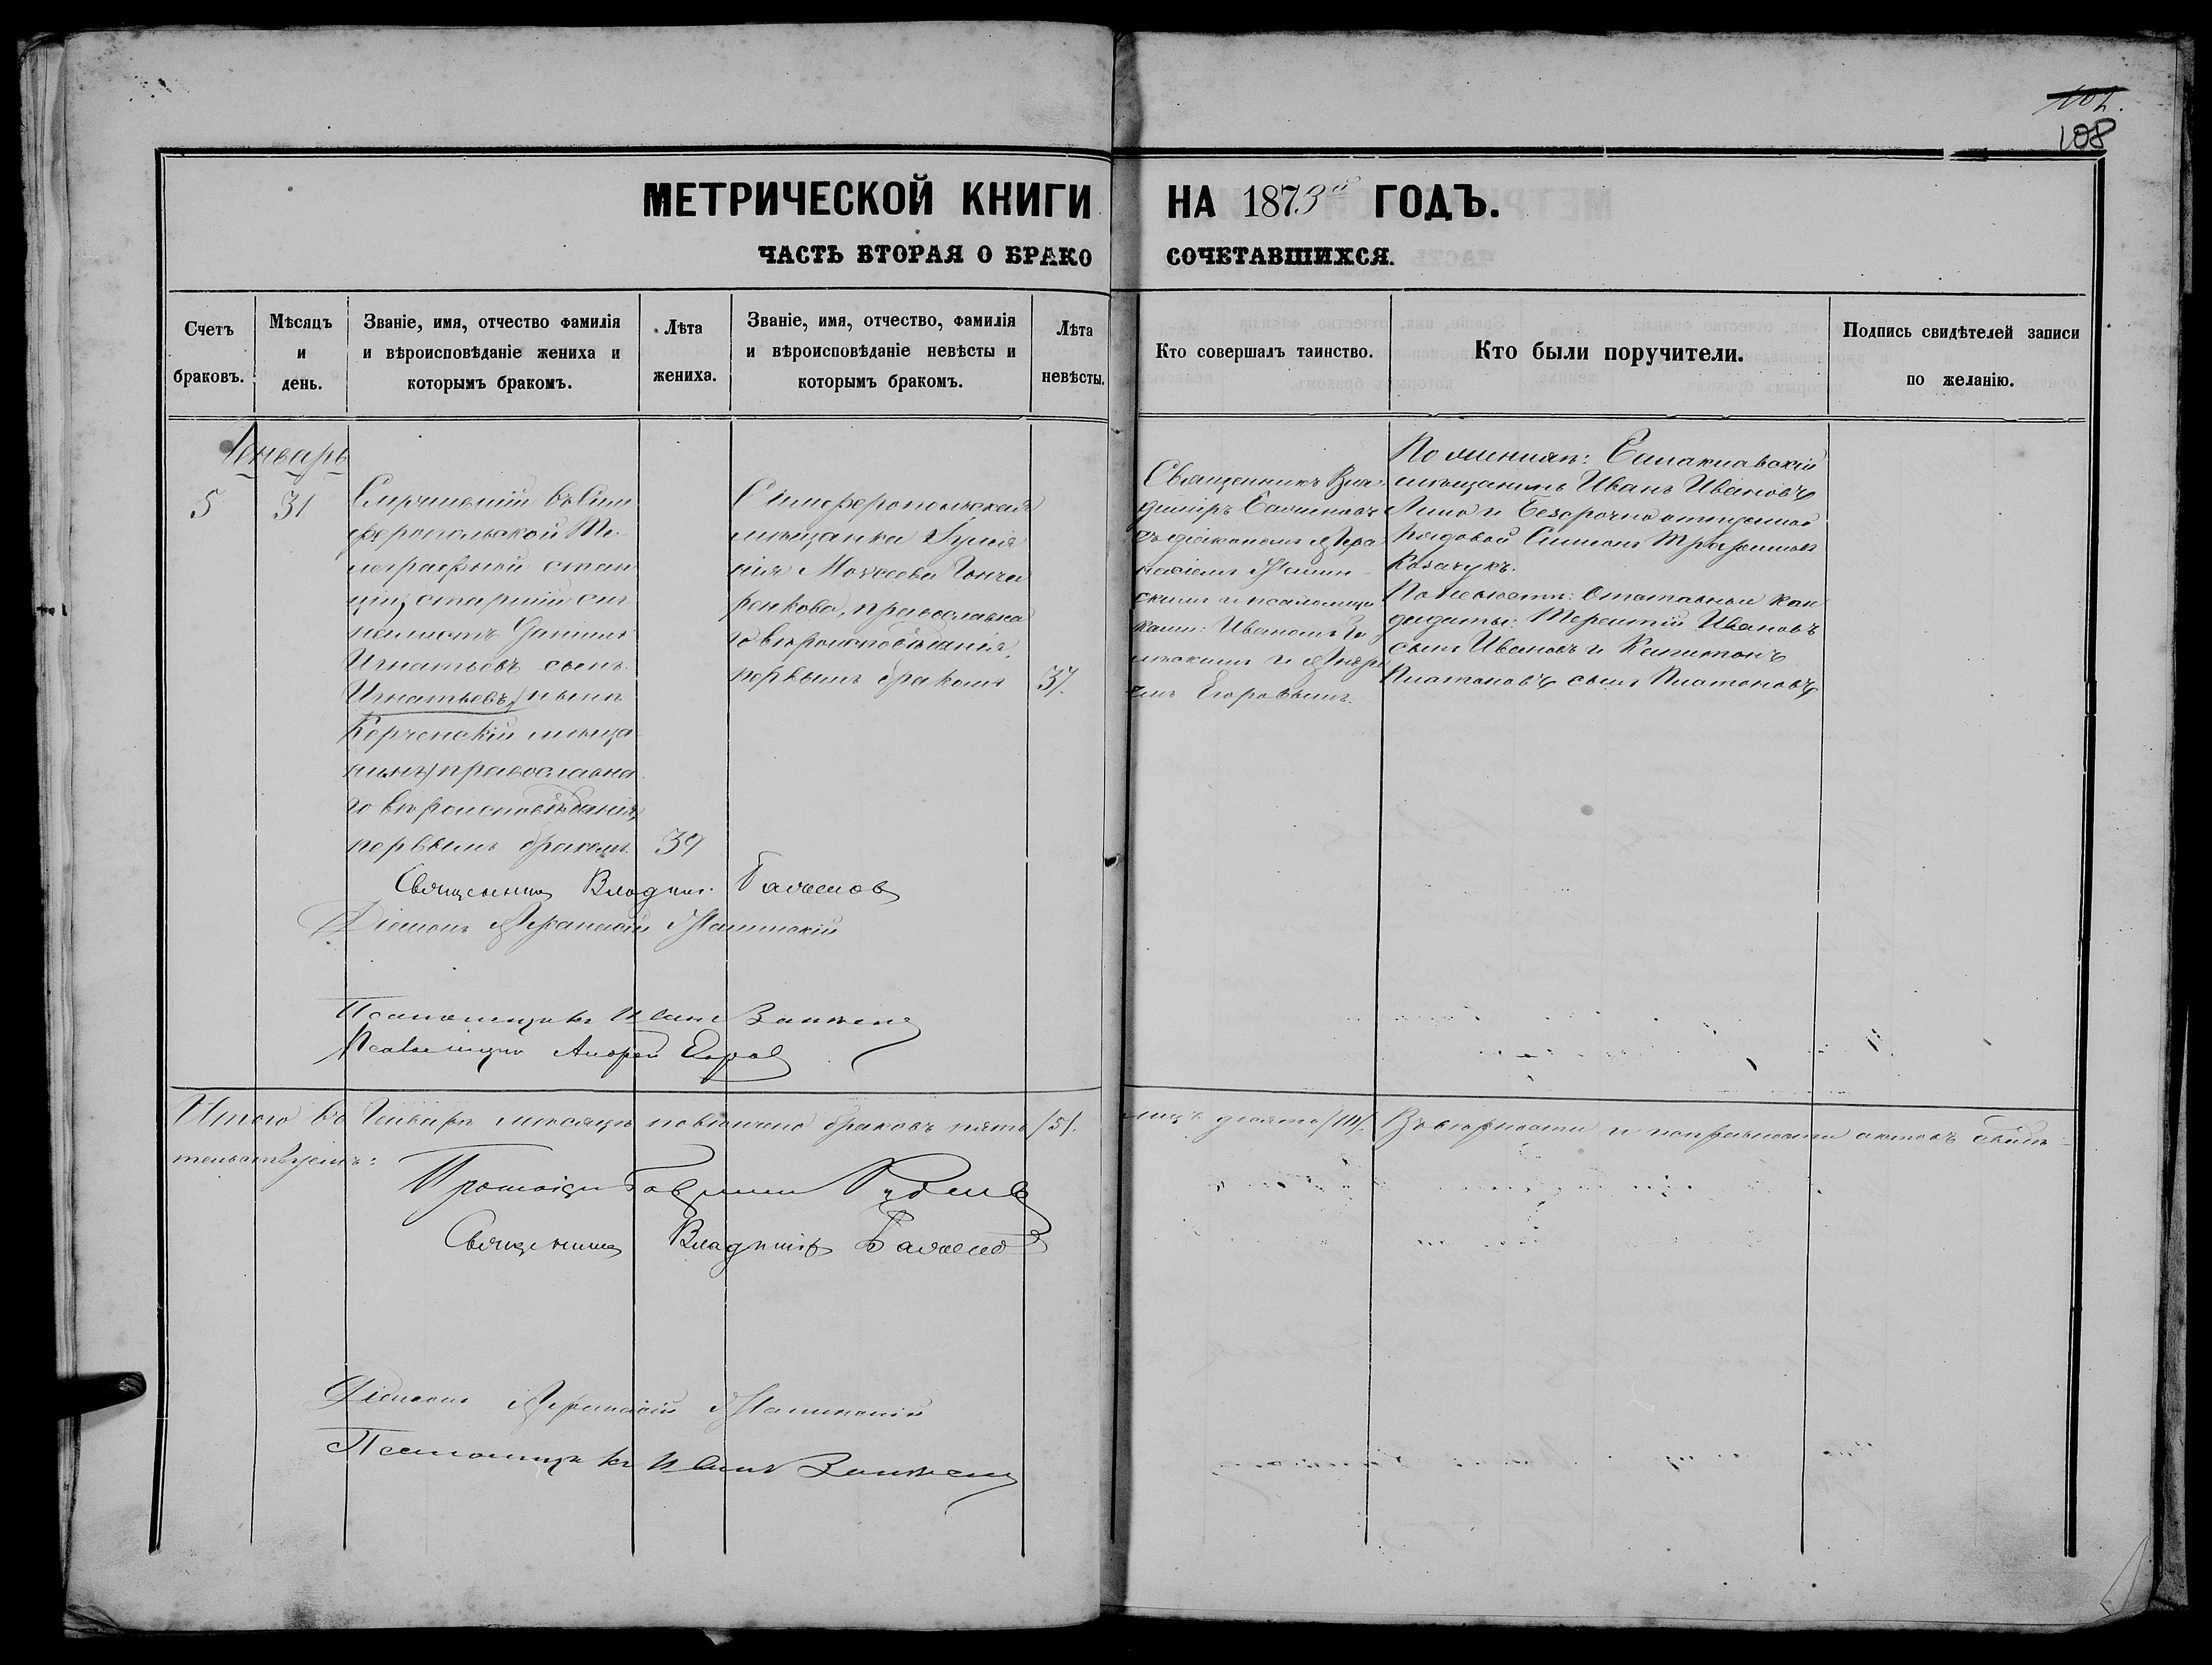 102.
108
МЕТРИЧЕСКОЙ КНИГИ НА 1873й ГОДЪ.
ЧАСТЬ ВТОРАЯ О БРАКОСОЧЕТАВШИХСЯ.
Счетъ браковъ.
Мѣсяцъ и день.
Званіе, имя, отчество фамилія
и вѣроисповѣданіе жениха и
которымъ бракомъ.
Лѣта жениха.
Званіе, имя, отчество, фамилія
и вѣроисповѣданіе невѣсты и
которымъ бракомъ.
Лѣта невѣсты.
Кто совершалъ таинство.
Кто были поручители.
Подпись свидѣтелей записи
по желанію.
Январь
5
31.
Служившій въ Сим
феропольской Те-
леграфной стан
ціи, старшій сиг
налистъ Даніилъ
Игнатьевъ сынъ
Игнатьевъ, /нынѣ
Керченскій мѣща
нинъ/ православна
го вѣроисповѣданія,
первымъ бракомъ.
39
Симферопольская
мѣщанка Іулiа
нія Моѵсеева Гонча
ренкова, православна
го вѣроисповѣданія,
первымъ бракомъ
37.
Священникъ Вла-
диміръ
съ діакономъ Аѳа
насіемъ
скимъ и псаломщи
ками: Иваномъ За
и Андре
емъ Егоровымъ.
По женихѣ: Балаклавскій
мѣщанинъ Иванъ Ивановъ
и Безсрочно отпускной
Рядовой Симеонъ Трофимовъ
Козачукъ.
По невѣстѣ: Отставные кан
дидаты: Терентій Ивановъ
сынъ Ивановъ и Капитонъ
Платоновъ сынъ Платоновъ
Священникъ Владим.
Діаконъ Аѳанасій
Псаломщикъ Иванъ
Псаломщикъ Андрей Егоровъ
Итого въ Январѣ мѣсяцѣ повѣнчано браковъ пять /5/. лицъ десять /10/. Въ вѣрности и исправности актовъ свидѣ-
тельствуемъ:
Протоіерей Гавріилъ
Священникъ Владиміръ
Діаконъ Аѳанасій
Псаломщикъ Иванъ